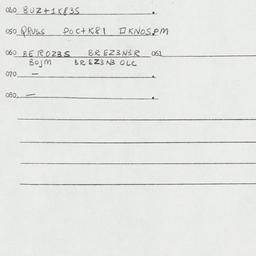 040 8UZ+1K83S
050 PRUSS DOC+K81 IKNOS.PM
060 BEROZ3S BREZ3N3R 061
BOJM BREZ3N3 OLC
070 —
080. —